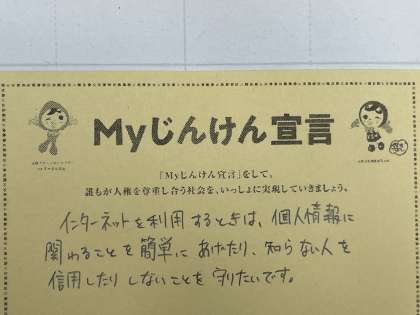 Myじんけん宣言
「Myじんけん宣言」をして、
誰もが人権を尊重し合う社会を、いっしょに実現していきましょう。
インターネットを利用するときは、個人情報に
関わることを簡単にあげたり、知らない人を
信用したりしないことを守りたいです。